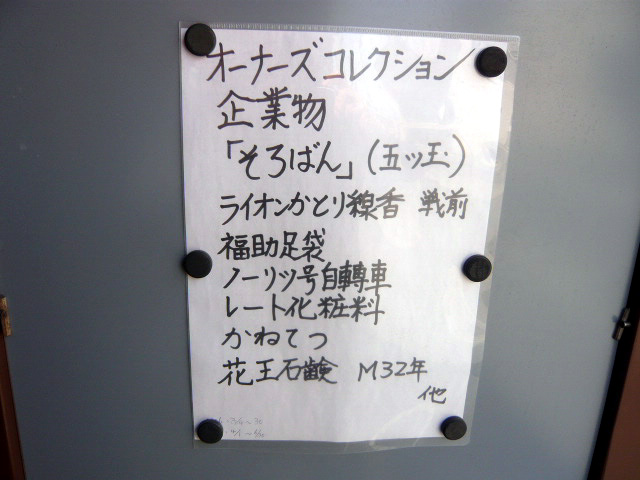 オーナーズコレクション
企業物
「そろばん」(五ッ玉)
ライオンかとり線香 戦前
福助足袋
ノーリツ号自轉車
レート化粧料
かねてつ
花王石鹸 M32年
他